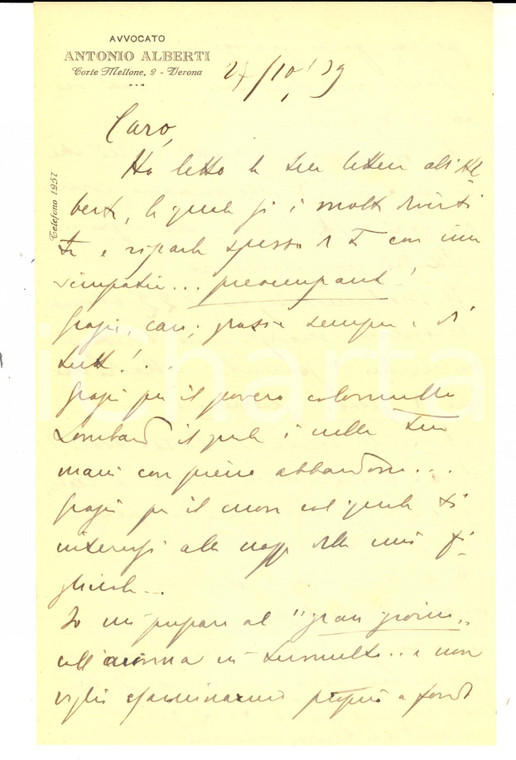 AVVOCATO
ANTONIO ALBERTI
Corte Mellone, 9 - Verona
Telefono 1957
27/10/39
Caro,
Ho letto la tua lettera all'Al
berti, la quale
e riparla spesso di Te con una
simpatia... preoccupante!
Grazie, caro, grazie sempre e di
tutto!..
Grazie per il povero colonnello
Lombardi il quale è nelle Tue
mani con pieno abbandono...
Grazie per il cuore col quale ti
interessi alle nozze della mia fi-
gliuola...
Io mi preparo al "gran giorno"
coll'anima in tumulto.. e non
voglio esaminarmi proprio a fondo
iCharta